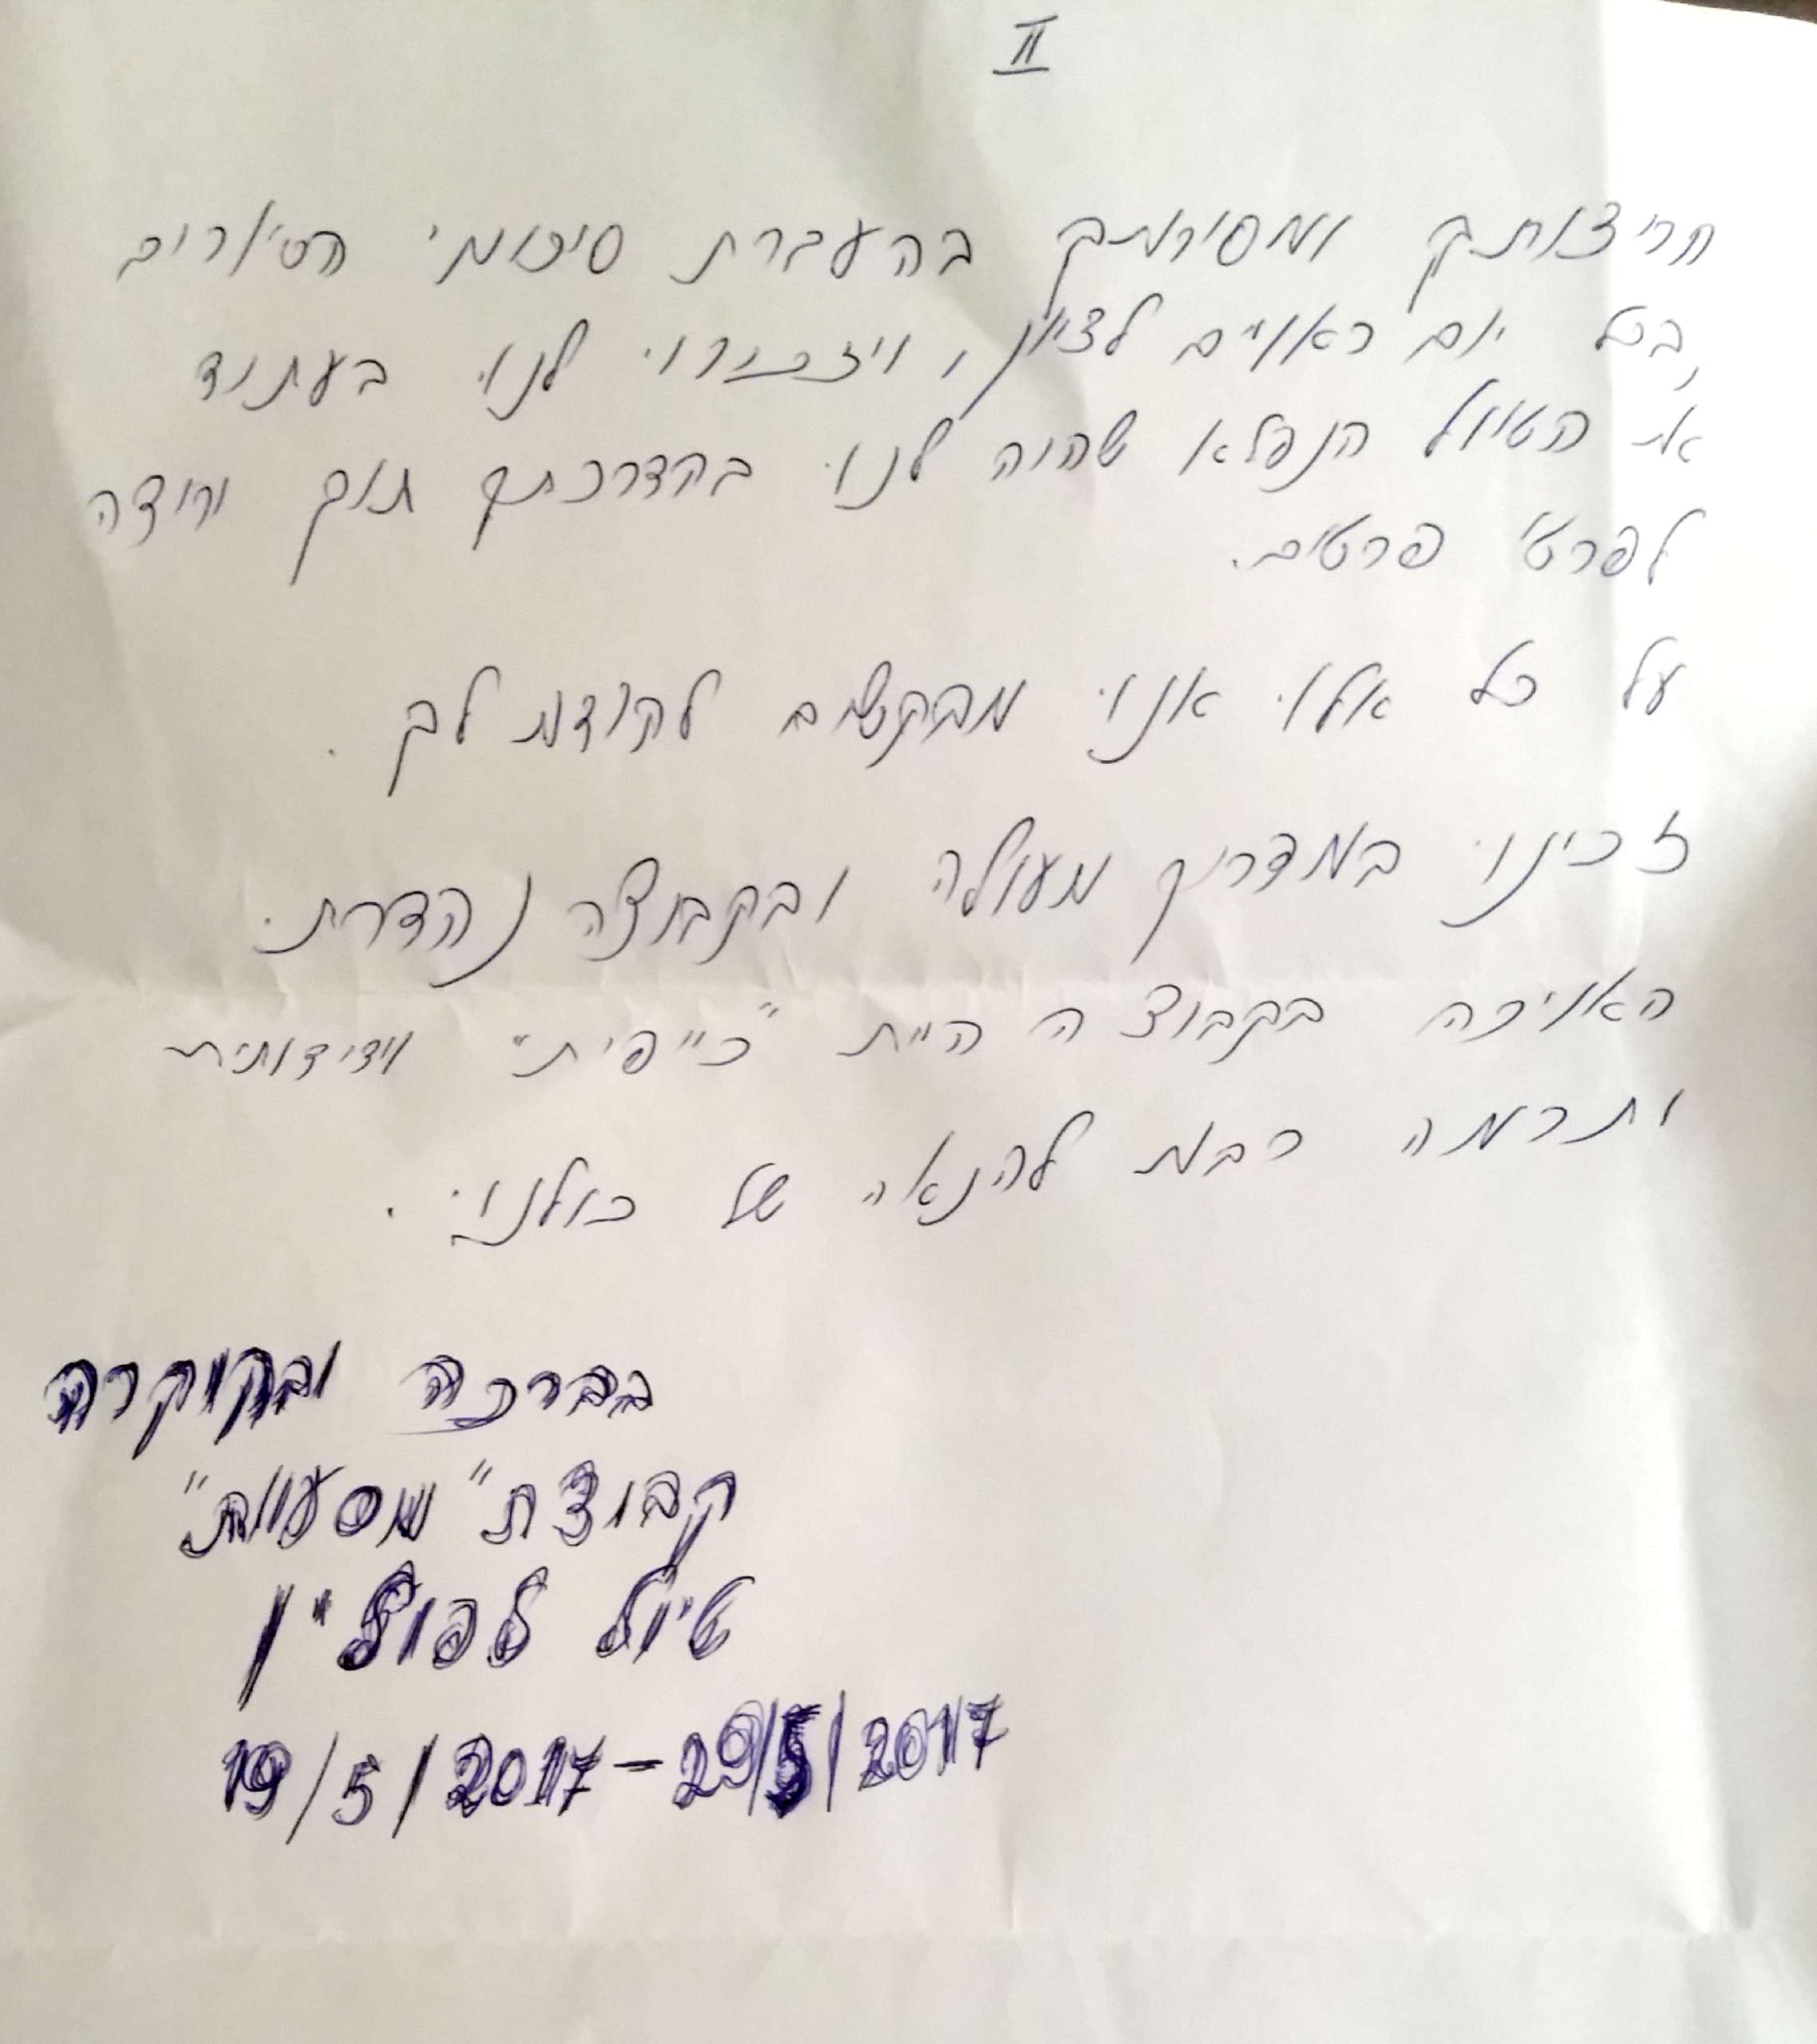 II
חריצותך ומסירותך בהעברת סיכומי הסיורים
בכל יום ראויים לציון, ויזכירו לנו בעתיד
את הטיול הנפלא שהיה לנו בהדרכתך תוך ירידה
לפרטי פרטים.
על כל אלו אנו מבקשים להודות לך.
זכינו במדריך מעולה ובקבוצה נהדרת.
האוירה בקבוצה היית "כייפית" וידידותית
ותרמה רבות להנאה של כולנו.
בברכה ובהוקרה
קבוצת "מסעות"
טיול לפולין
19/5/2017-29/5/2017